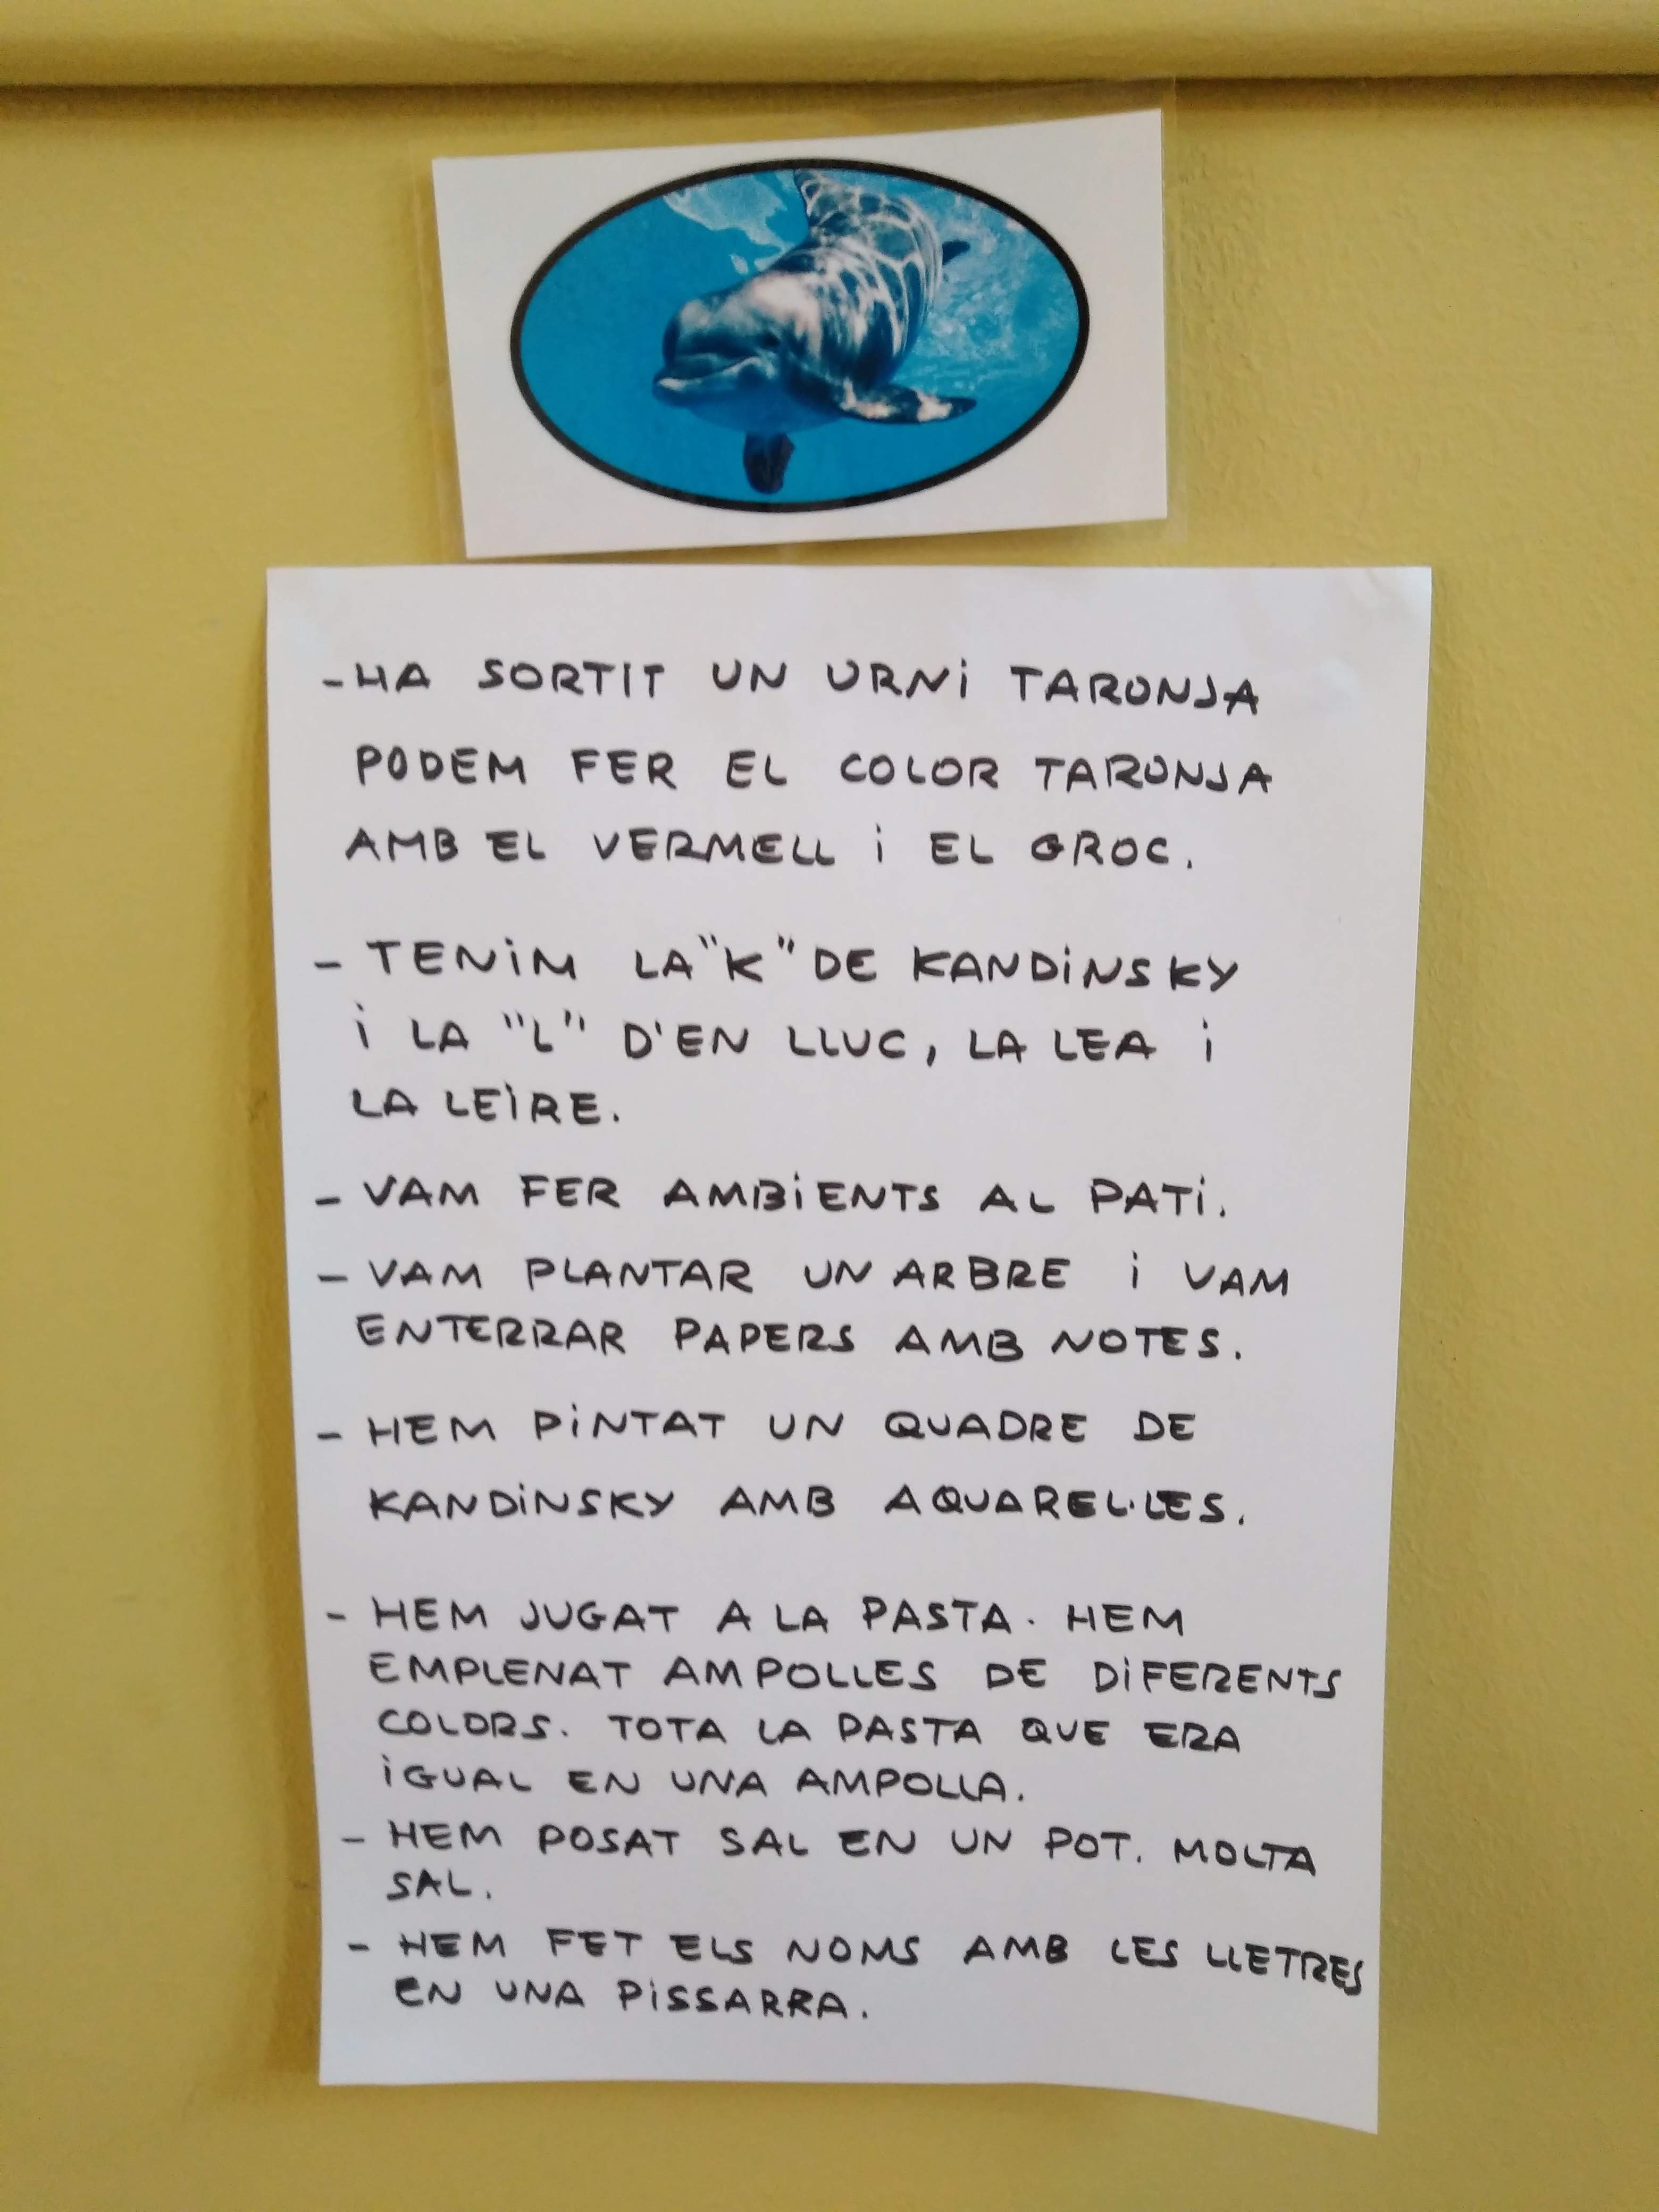 - HA SORTIT UN URNi TARONJA
PODEM FER EL COLOR TARONJA
AMB EL VERMELL i EL GROC.
- TENiM LA "K" DE KANDiNSKY
i LA "L" D'EN LLUC, LA LEA i
LA LEiRE.
- VAM FER AMBiENTS AL PATi.
- VAM PLANTAR UN ARBRE i VAM
ENTERRAR PAPERS AMB NOTES.
- HEM PiNTAT UN QUADRE DE
KANDiNSKY AMB AQUAREL·LES.
- HEM JUGAT A LA PASTA. HEM
EMPLENAT AMPOLLES DE DiFERENTS
COLORS. TOTA LA PASTA QUE ERA
iGUAL EN UNA AMPOLLA.
- HEM POSAT SAL EN UN POT. MOLTA
SAL.
- HEM FET ELS NOMS AMB LES LLETRES
EN UNA PiSSARRA.